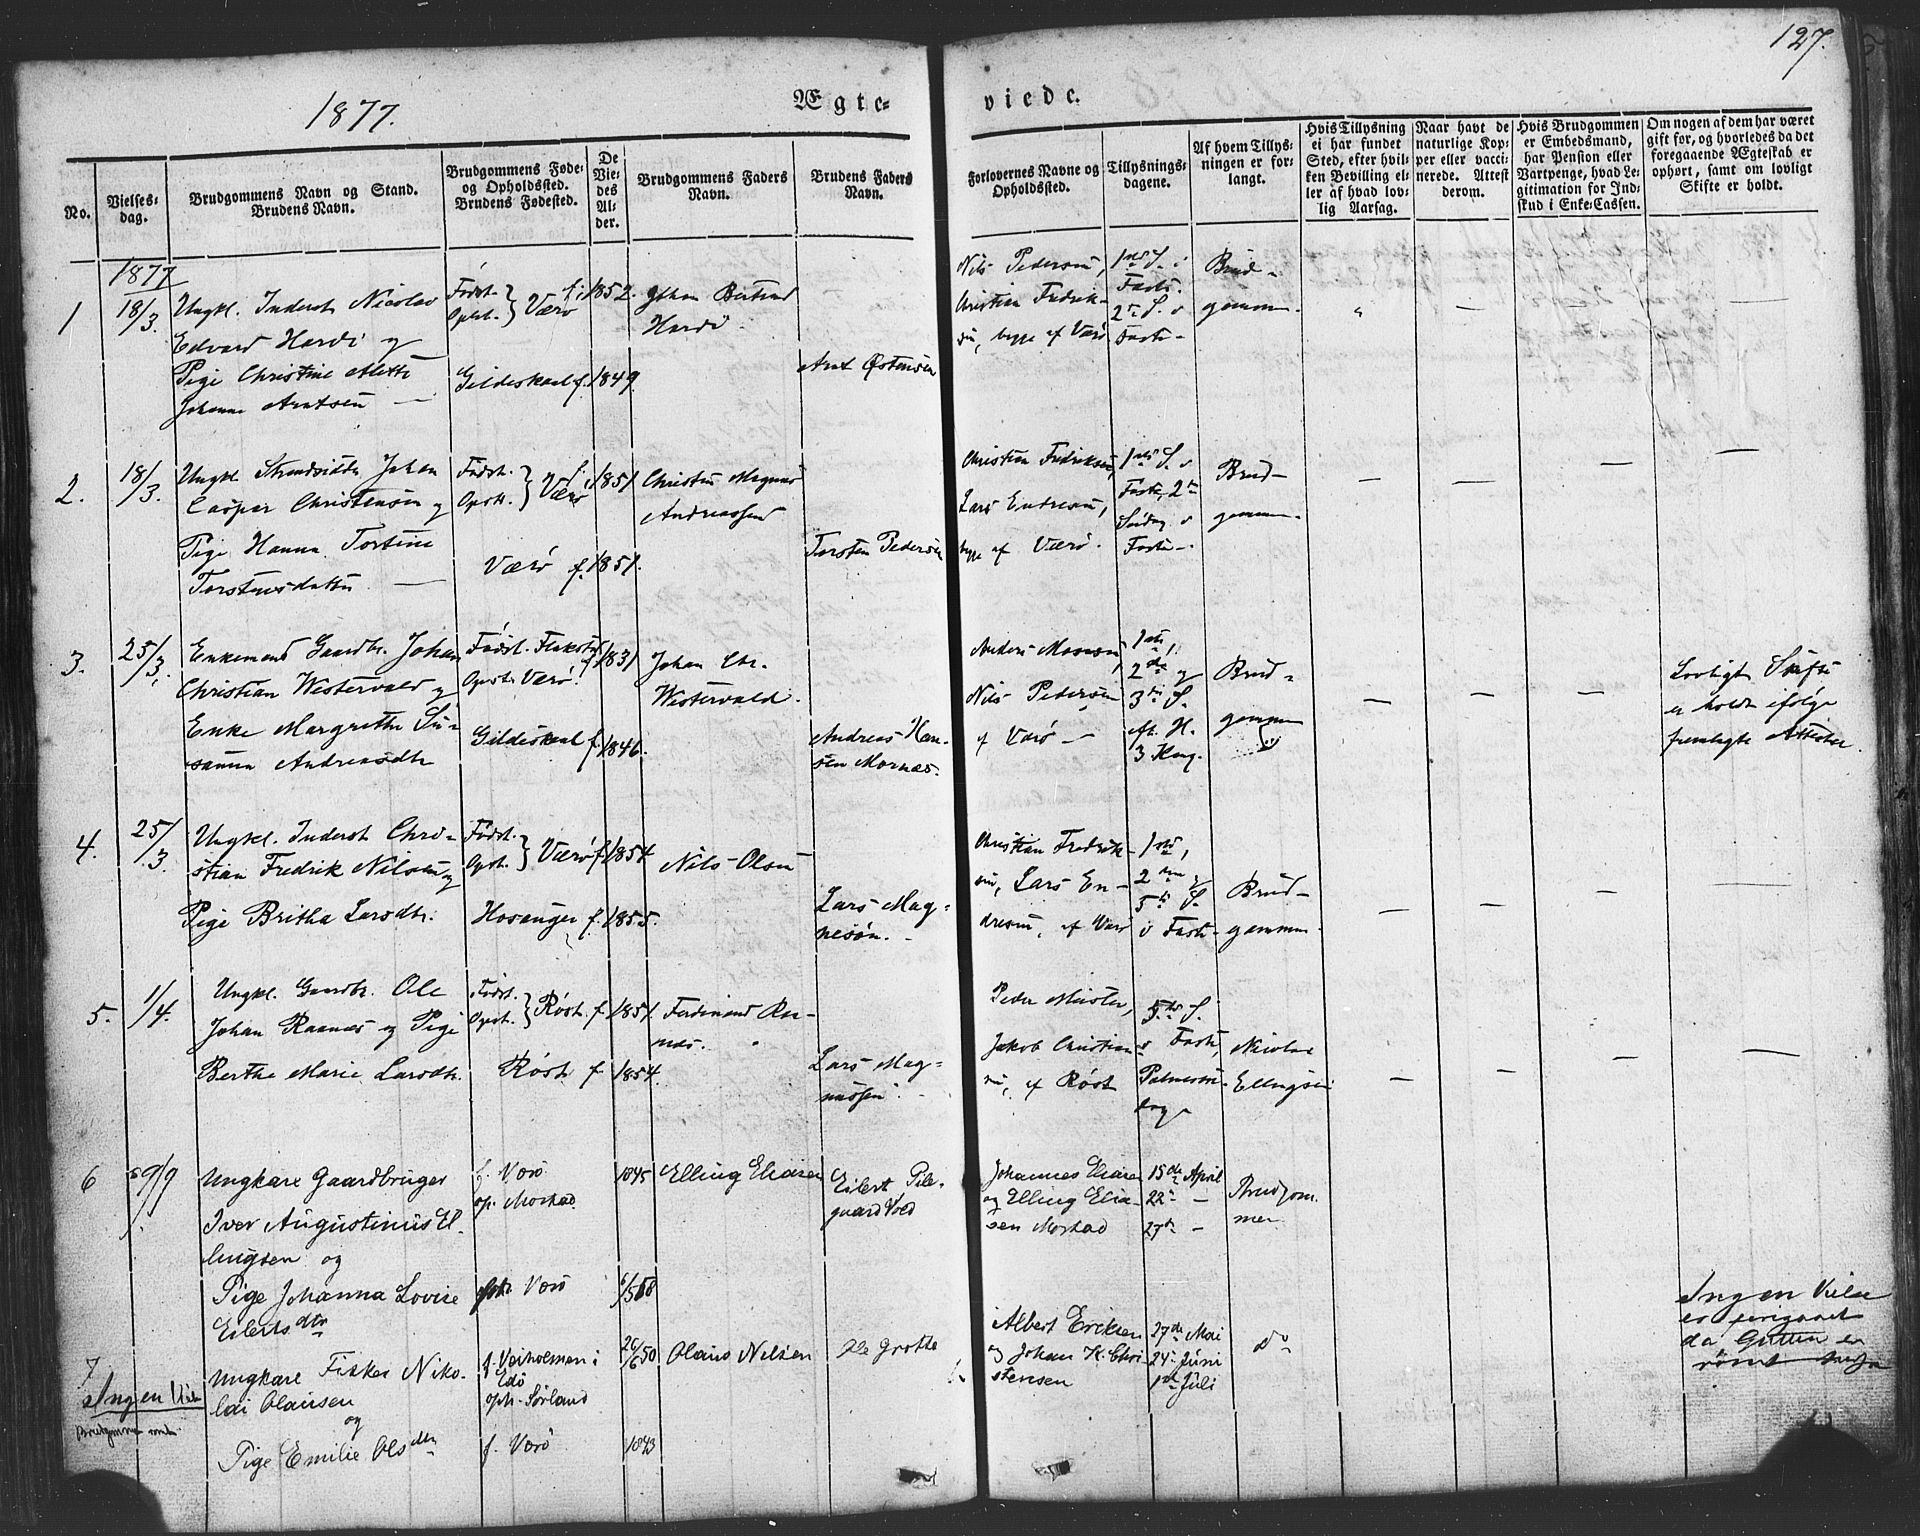 127.
1877.
Ægte=
viede.
No.
Vielses=
dag.
Brudgommens Navn og Stand.
Brudens Navn.
Brudgommens Føde=
og Opholdssted.
Brudens Fødested.
De
Vie=
des
Al=
der.
Brudgommens Faders
Navn.
Brudens Faders
Navn.
Forlovernes Navne og
Opholdssted.
Tillysnings=
dagene.
Af hvem Tillys=
ningen er for=
langt.
Hvis Tillysning
ei har fundet
Sted, efter hvil=
ken Bevilling el=
ler af hvad lov=
lig Aarsag.
Naar havt de
naturlige Kop=
per eller vacci=
nerede. Attest
derom.
Hvis Brudgommen
er Embedsmand,
har Pension eller
Vartpenge, hvad Le=
gitimation for Ind=
skud i Enke=Cassen.
Om nogen af dem har været
gift før, og hvorledes da det
foregaaende Ægteskab er
ophørt, samt om lovligt
Skifte er holdt.
1877
1
18/3.
Ungkl. Inderst Nicolai
Edvard Hardi og
Pige Christine Mette
Johanne Arntsen —
Født.
Ophst. } Værø
Gildeskaal f.
1852.
1849.
Johan Bertend
Hardi.
Arnt Østensen
Nils Pedersen,
Christian Fredrik-
sen, begge af Værø
1ste S. i
Faste.
2den S. i
Faste-
Brud-
gommen.
2.
18/3.
Ungkl. Strandsidder Johan
Casper Christensen og
Pige Hanna Tortine
Torstensdatter —
Født.
Opst. } Værø
Værø f.
1851
1851.
Christen Magnus
Andreassen
Torsten Pedersen
Christian Fredriksen,
Lars Endresen,
begge af Værø.
1ste S. i
Faste, 2den
Søndag i
Faste-
Brud-
gommen.
3.
25/3.
Enkemand Gaardbr. Johan
Christian Westervald og
Enke Margrethe Su-
sanna Andreasdtr
Født. Flakstad
Opst. Værø
Gildeskaal f.
1831
1846.
Johan Chr.
Westervald.
Andreas Han-
sen Mornæs.
Anders Monsen,
Nils Pedersen
af Værø —
1ste,
2den og
3die S.
aft. H.
3 Kong.
Brud-
gommen
Lovligt Skifte
er holdt ifølge
fremlagte Attester.
4.
25/3.
Ungkl. Inderst Chri-
stian Fredrik Nilsen og
Pige Britha Larsdtr.
Født.
Opst. } Værø f.
Hosanger f.
1854
1855.
Nils Olsen
Lars Mag-
nesøn.
Christian Fredrik-
sen, Lars En-
dresen, af Værø
1ste,
2den og
5te S.
i Faste-
Brud-
gommen.
5.
1/4.
Ungkl. Gaardbr. Ole
Johan Raanæs og Pige
Berthe Marie Larsdtr.
Født.
Opst. } Røst. f.
Røst f.
1851.
1854.
Ferdinand Ra-
næs.
Lars Mag-
nussen.
Peder Meister,
Jakob Christian-
sen, af Røst
5te S.
i Faste,
Palmesøn-
dag
Nicolai
Ellingsen
6
9/9
Ungkare Gaardbruger
Iver Augustinus El-
lingsen og
Pige Johanna Lovise
Eilertsdtr
f. Værø
op. Mostad
Værø
1845
6/5 58
Elling Eliasen
Eilert Pile-
gaard Vold
Johannes Eliasen
og Elling Elia-
sen Mostad
15de April
22- —
27de —
Brudgom.
men
7
Ingen Vielse
Ungkare Fisker Niko-
lai Olausen
og
Pige Emilie Olsdtr
f. Vaeholmen i
Edø
oph. Sørland
f. Værø
26/6 50
1843
Olaus Nilsen
Ole Grotte
Albert Eriksen
og Johan K. Chri-
stensen
27de Mai
24- Juni
1st Juli
do
Ingen Vielse
er foregaaet
da Gutten er
rømt